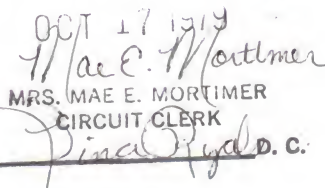 OCT 17 1919
Mae E. Mortimer
MRS. MAE E. MORTIMER
CIRCUIT CLERK
D. C.